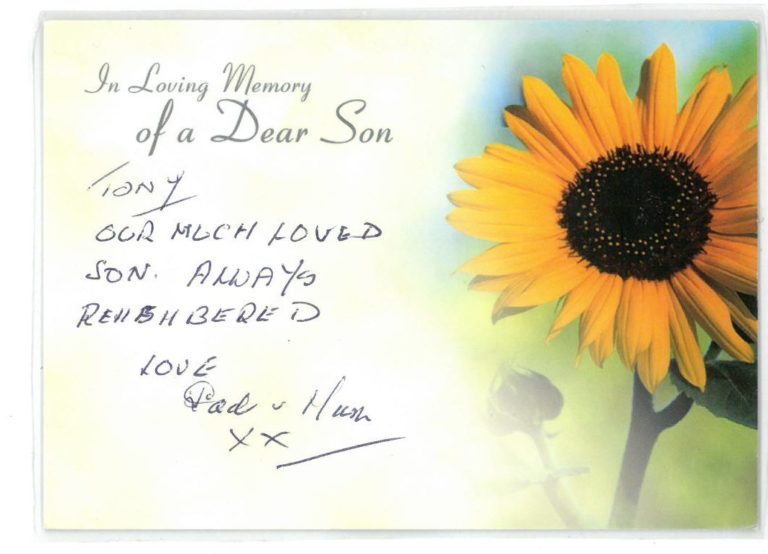 In Loving Memory
of a Dear Son
TONY
OUR MUCH LOVED
SON. ALWAYS
REMEMBERED
LOVE
Dad & Mum
XX